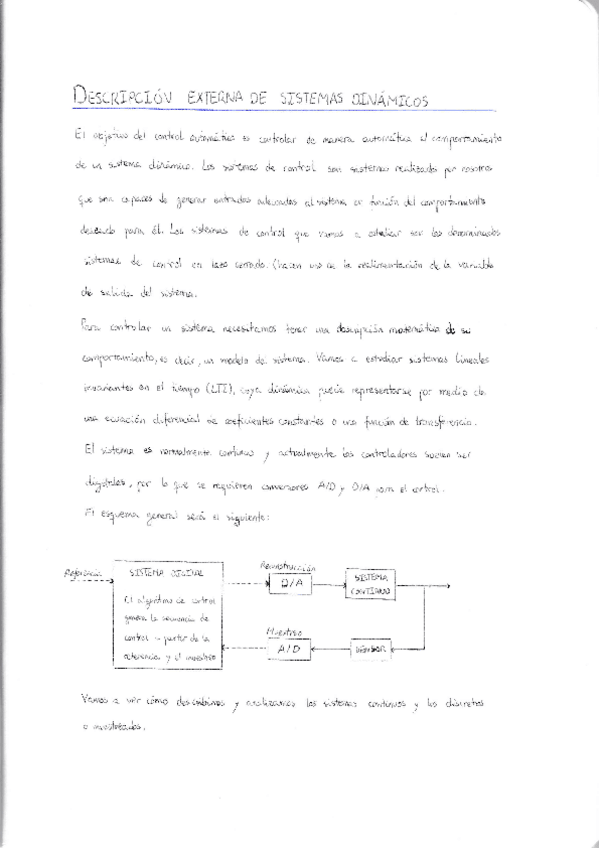 DESCRIPCIÓN EXTERNA DE SISTEMAS DINÁMICOS
El objetivo del control automático es controlar de manera automática el comportamiento
de un sistema dinámico. Los sistemas de control son sistemas realizados por nosotros
que son capaces de generar entradas adecuadas al sistema en función del comportamiento
deseado para él. Los sistemas de control que vamos a estudiar son los denominados
sistemas de control en lazo cerrado. (hacen uso de la realimentación de la variable
de salida del sistema.
Para controlar un sistema necesitamos tener una descripción matemática de su
comportamiento, es decir, un modelo de sistema. Vamos a estudiar sistemas lineales
invariantes en el tiempo (LTI), cuya dinámica puede representarse por medio de
una ecuación diferencial de coeficientes constantes o una función de transferencia.
El sistema es normalmente continuo y actualmente los controladores suelen ser
digitales, por lo que se requieren conversores A/D y D/A para el control.
El esquema general será el siguiente:
Referencia
SISTEMA DIGITAL
El algoritmo de control
genera la secuencia de
control a partir de la
referencia y el muestreo
Reconstrucción
D/A
SISTEMA
CONTINUO
Muestreo
A/D
SENSOR
Vamos a ver cómo describimos y analizamos los sistemas continuos y los discretos
o muestreados.